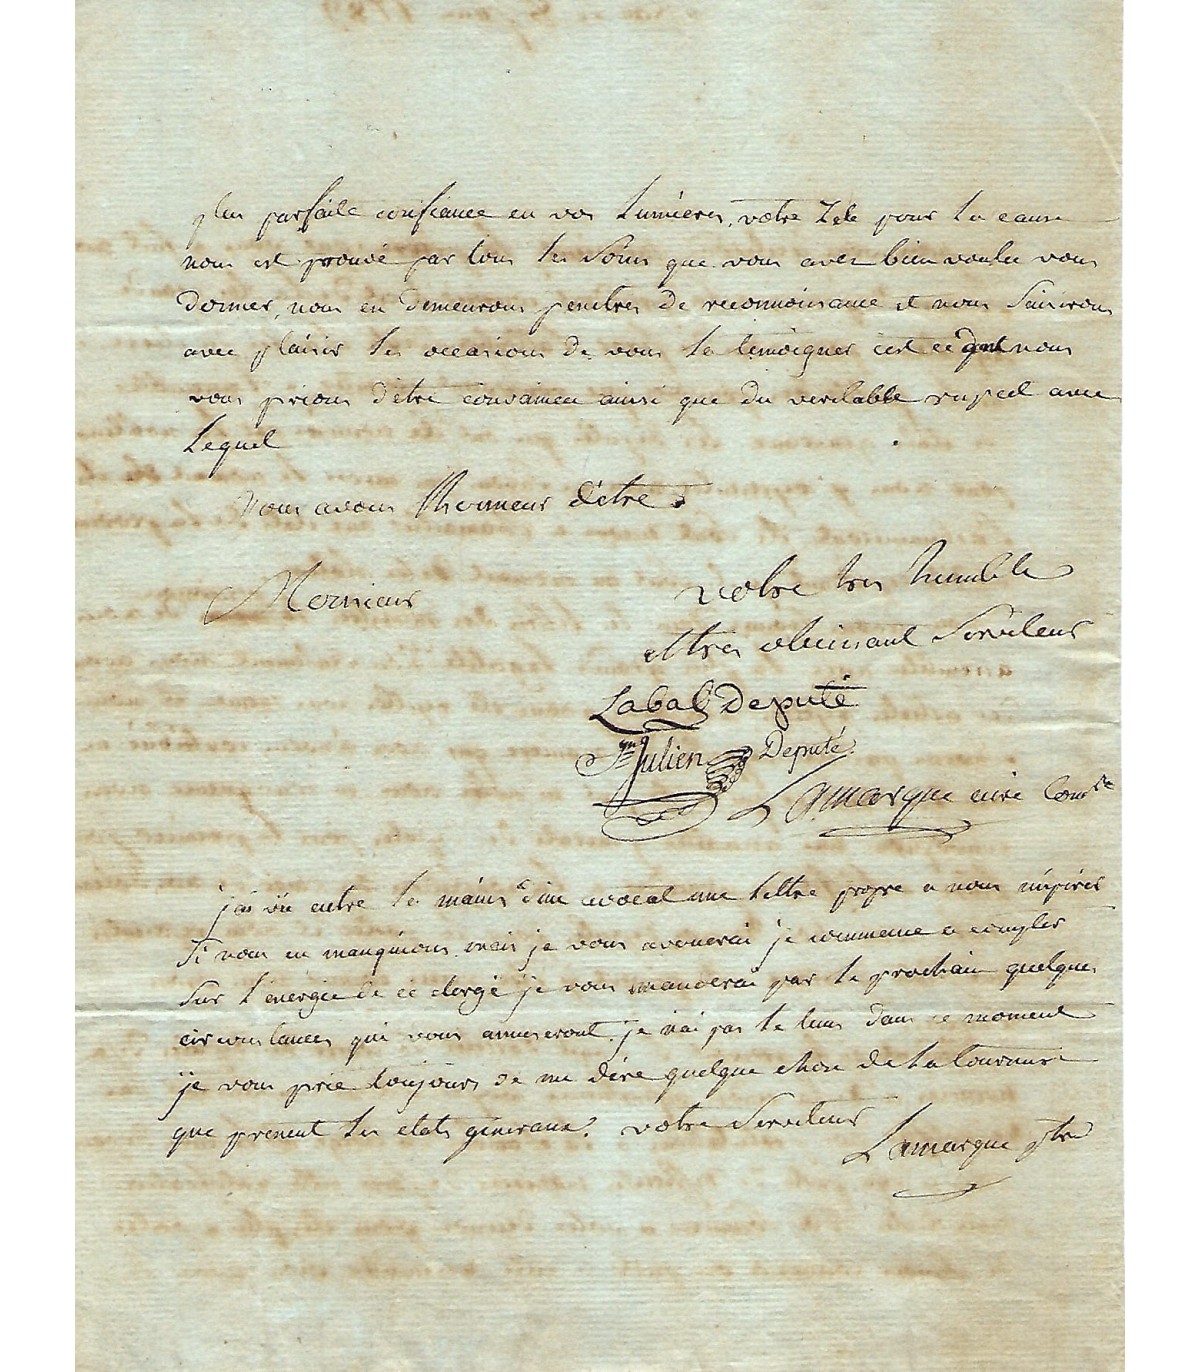 plus parfaite confiance en vos lumieres, votre Zele pour la cause
nous est prouvé par tous les Soins que vous avez bien voulu vous
donner, nous en demeurons penetrés de reconnoissance et nous Saisirons
avec plaisir les occasions de vous la temoigner c'est ce dont nous
vous prions d'etre convaincu ainsi que du veritable respect avec
Lequel
Nous avons l'honneur d'etre
Monsieur
votre tres humble
et tres obeissant Serviteur
Labat Deputé
St Julien Deputé
Lamarque curé Comre
j'ai vû entre les mains d'un avocat une lettre propre a nous inspirer
Si nous en manquions mais je vous avouerai je commence a compter
Sur l'energie de ce clergé je vous manderai par le prochain quelques
circonstances qui vous amuseront. je n'ai pas le tems dans ce moment
je vous prie toujours de me dire quelque chose de la tournure
que prenent les etats generaux. votre Serviteur
Lamarque ptre